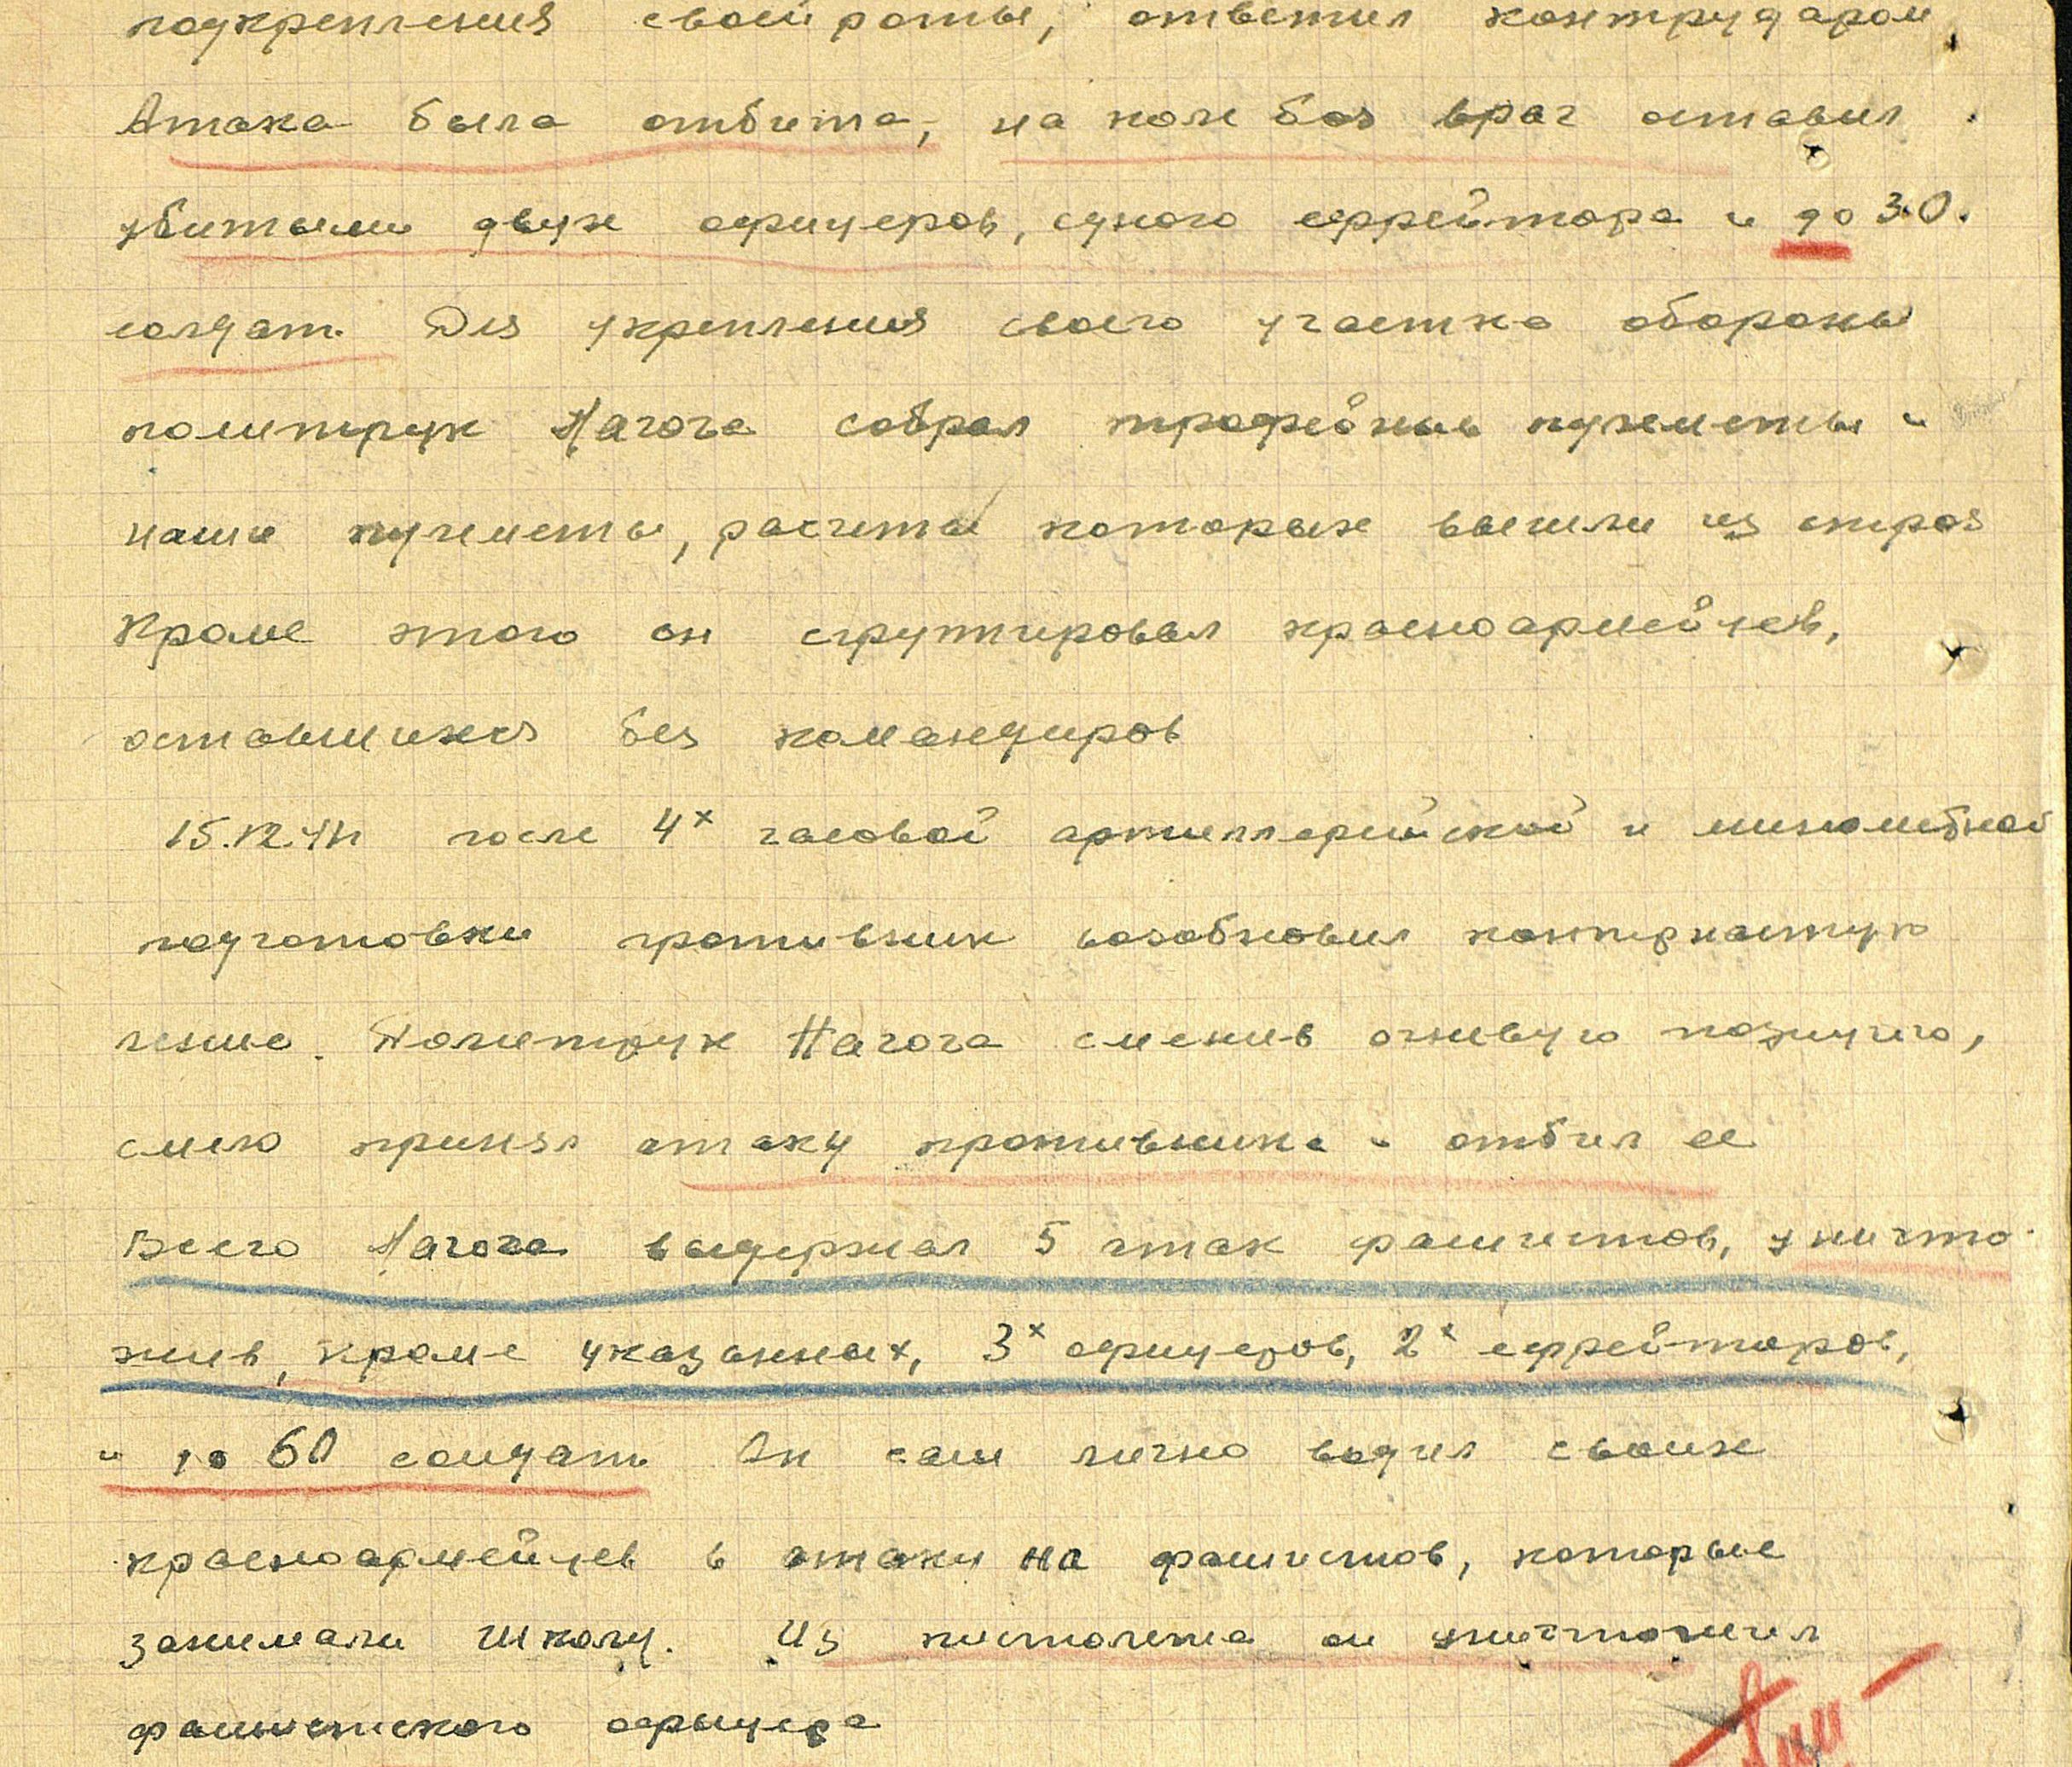 подкрепления своей роты, ответил контрударом.
Атака была отбита, на поле боя враг оставил
убитыми двух офицеров, одного ефрейтора и до 30.
солдат. Для укрепления своего участка обороны
политрук Нагога собрал трофейные пулеметы и
наши пулеметы, расчеты которых вышли из строя
Кроме этого он сгруппировал красноармейцев,
оставшихся без командиров
15.12.41г после 4х часовой артиллерийской и минометной
подготовки противник возобновил контрнаступ
ление. Политрук Нагога сменив огневую позицию,
смело принял атаку противника и отбил ее
Всего Нагога выдержал 5 атак фашистов, уничто-
жив, кроме указанных, 3х офицеров, 2х ефрейторов,
и до 60 солдат. Он сам лично водил своих
красноармейцев в атаки на фашистов, которые
занимали школу. Из пистолета он уничтожил
фашистского офицера